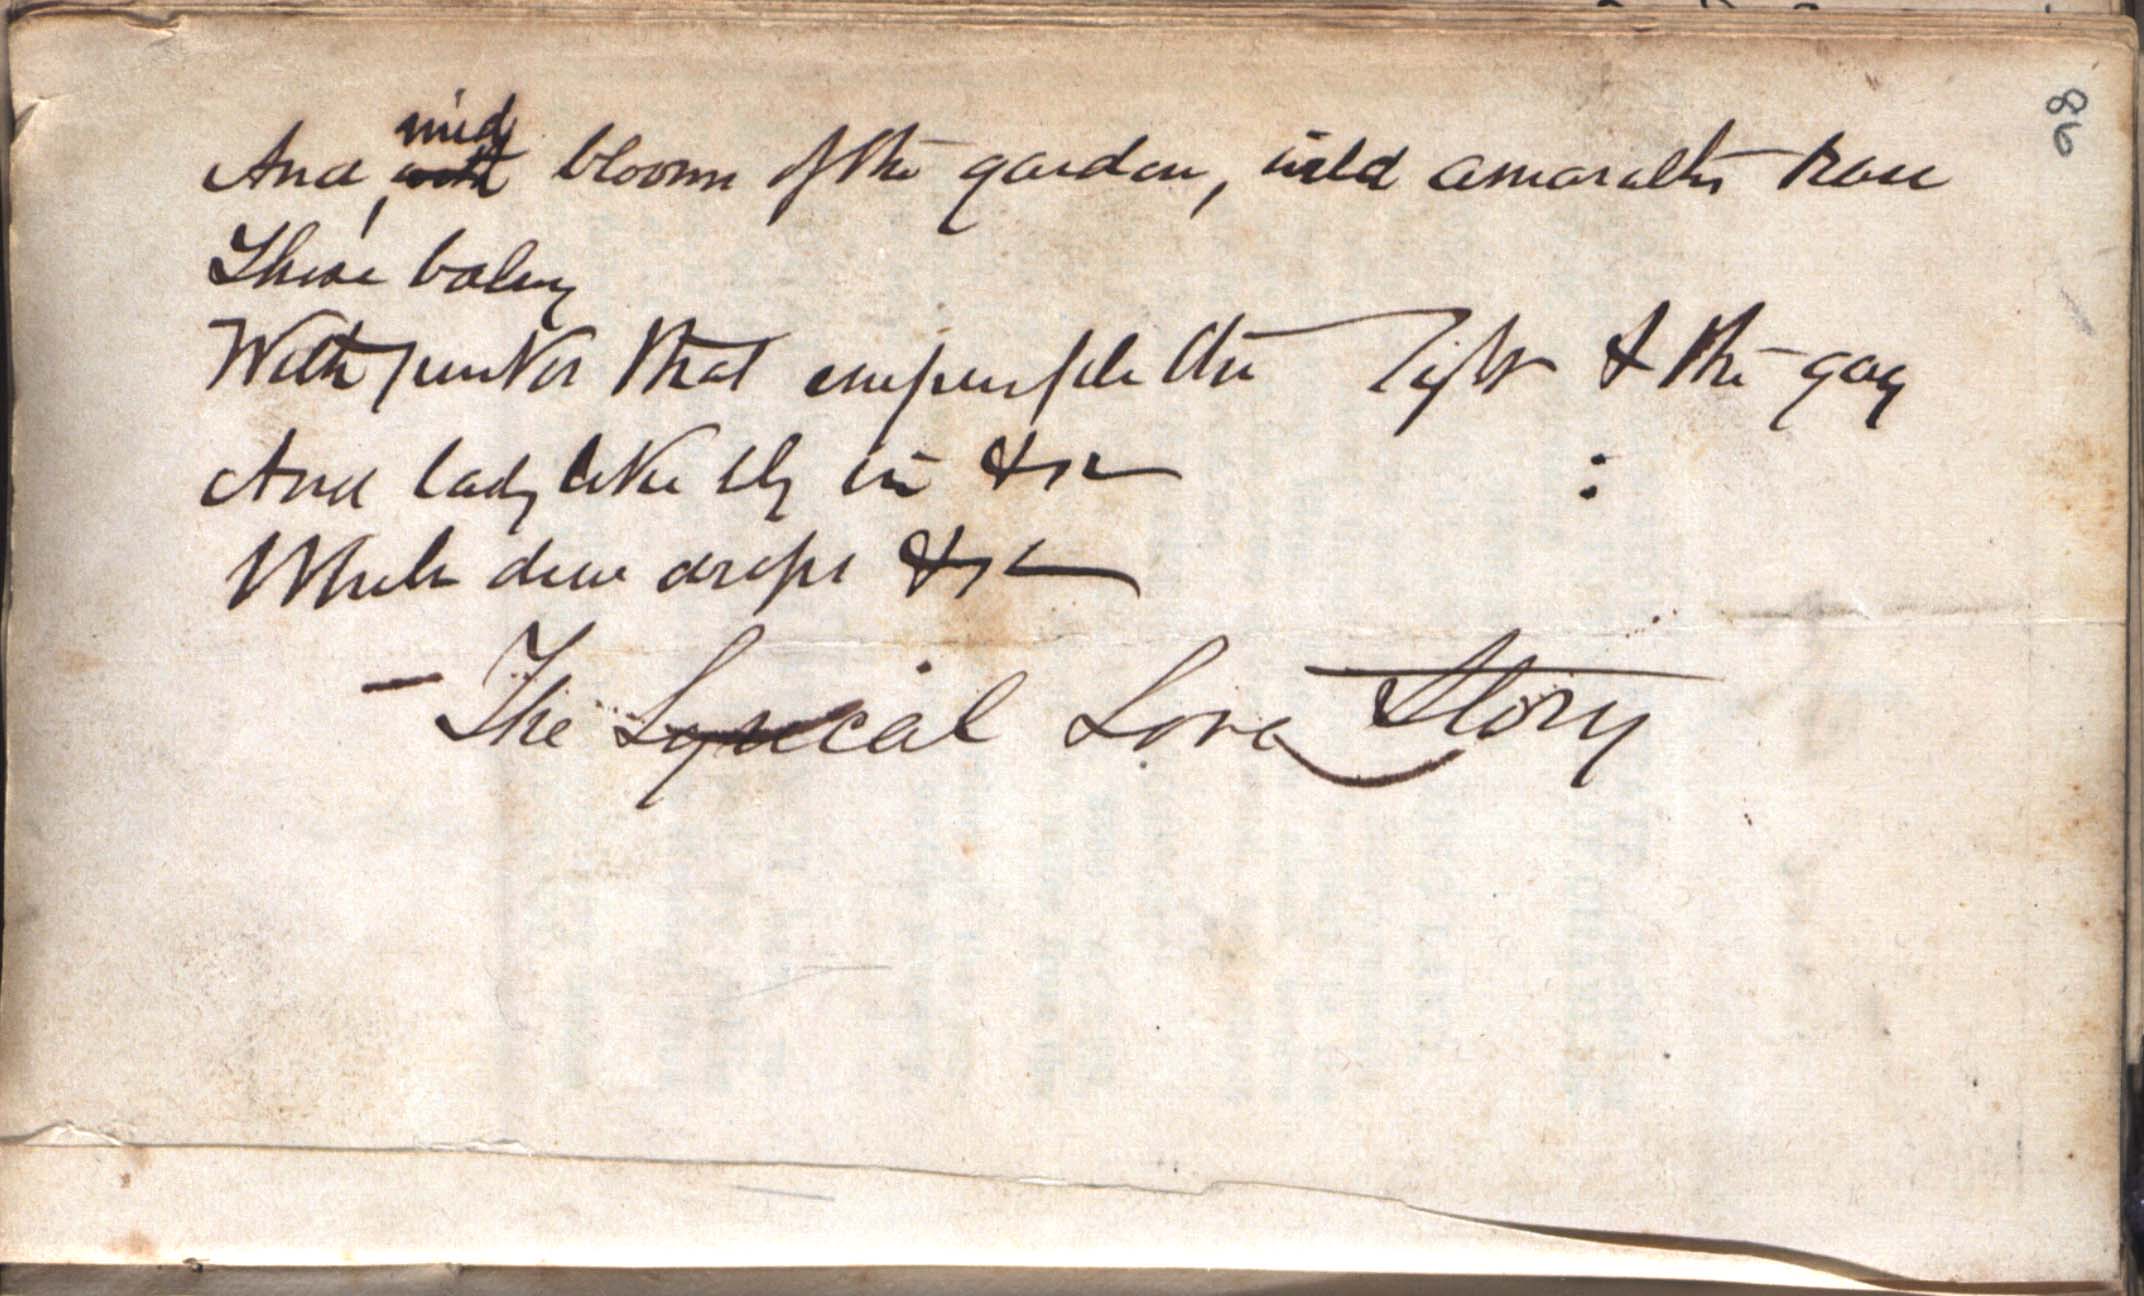 86
mid
And, with bloom of the garden, wild amaranths
These balmy
With that empurple the light & the gay
And ladylike sly in &c
While dew drops &c
— The Lyrical Love Story